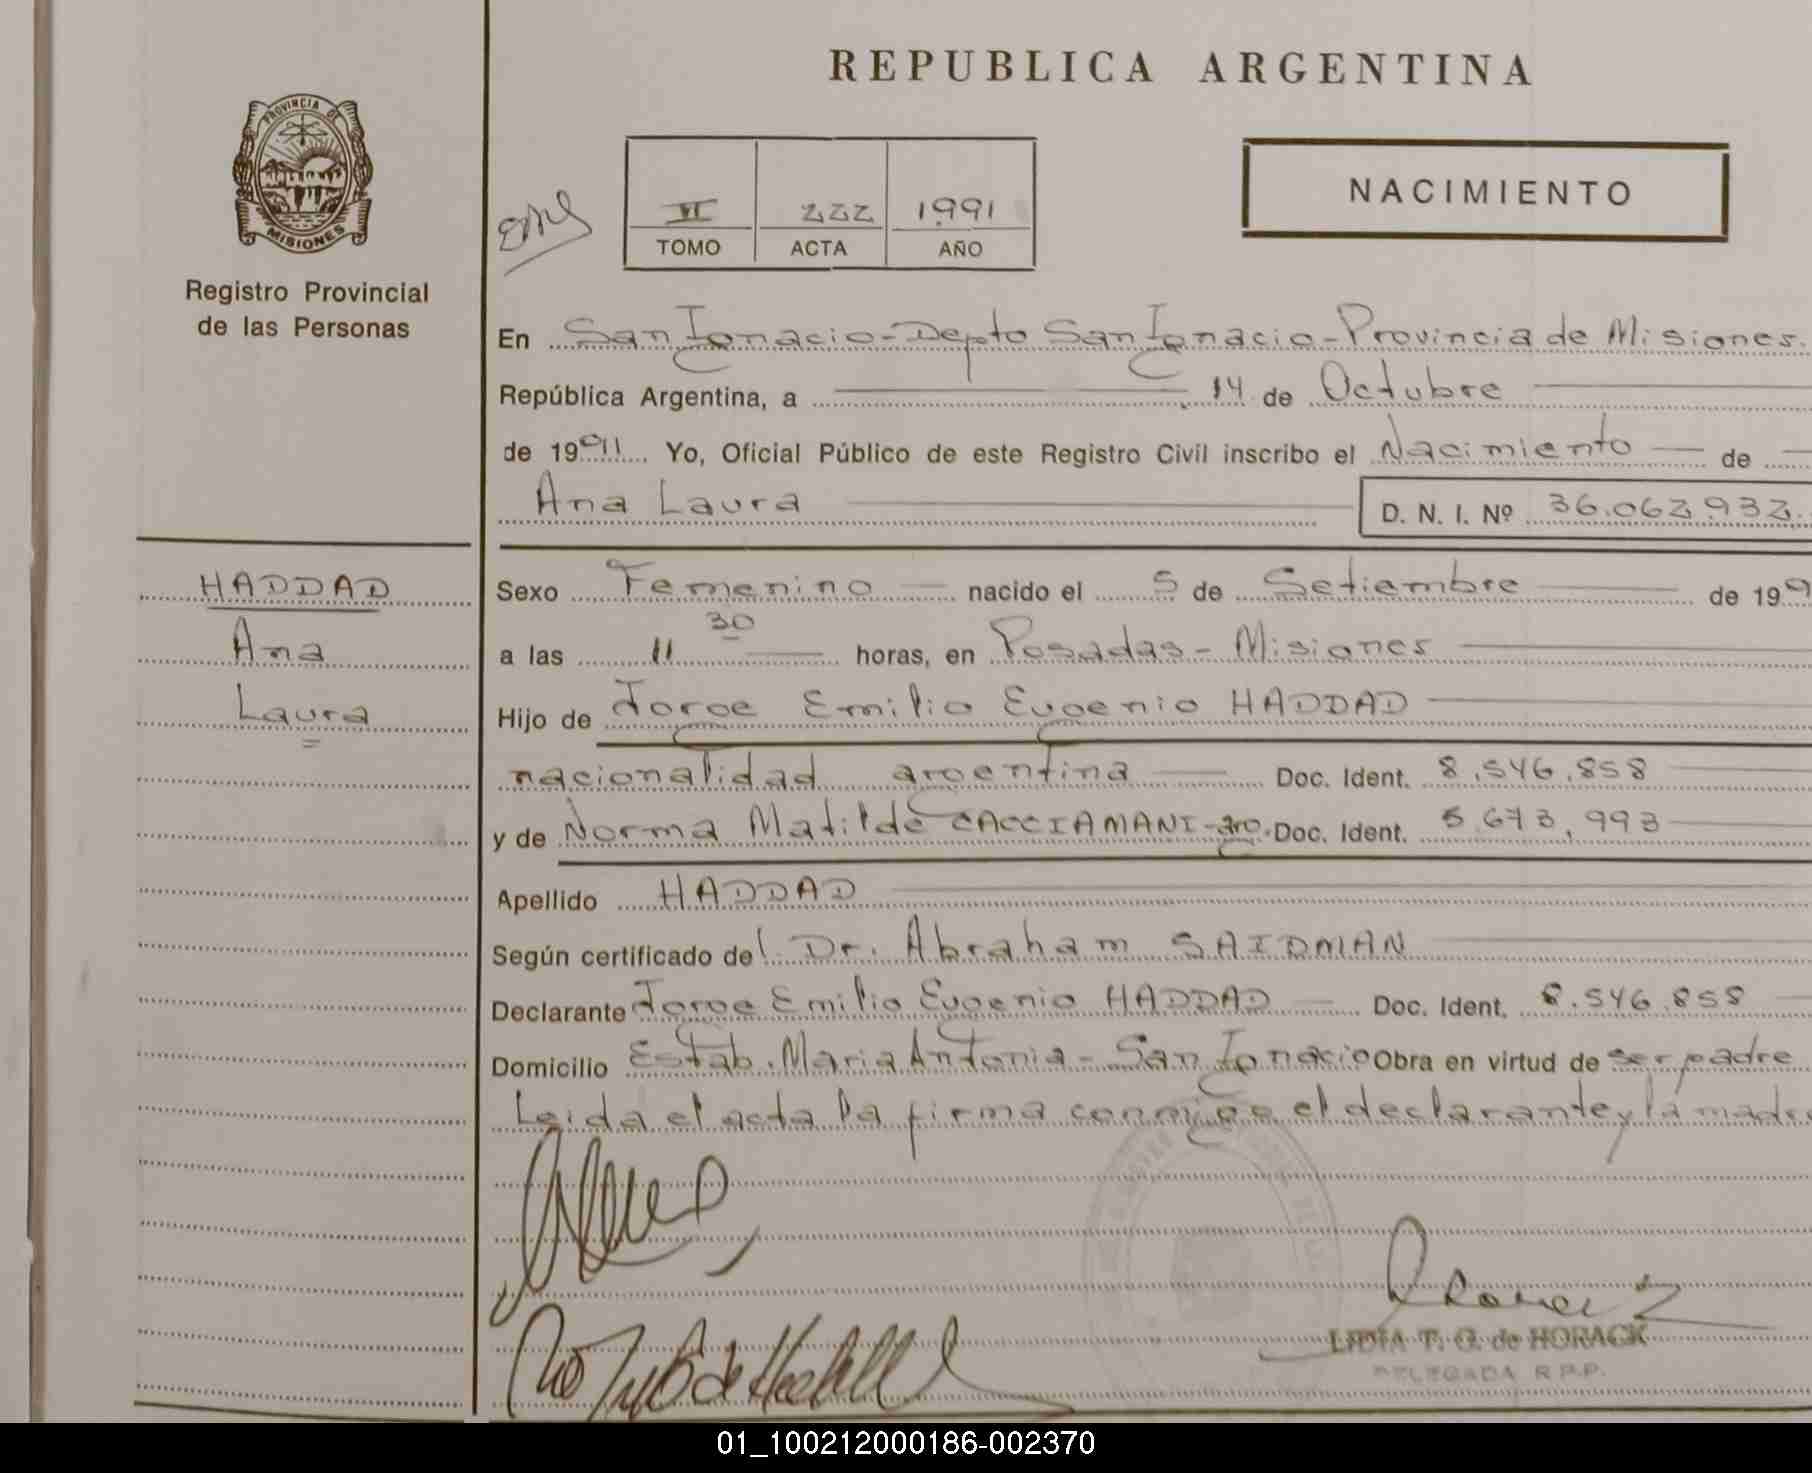 REPUBLICA ARGENTINA
PROVINCIA DE
MISIONES
Registro Provincial
de las Personas
VI 222 1991
TOMO ACTA AÑO
NACIMIENTO
En San Ignacio-Depto San Ignacio-Provincia de Misiones.
República Argentina, a 14 de Octubre
de 1991 Yo, Oficial Público de este Registro Civil inscribo el Nacimiento de
Ana Laura D. N. I. Nº 36.062.932.
HADDAD
Ana
Laura
Sexo Femenino nacido el 5 de Setiembre de 199
a las 11 30 horas, en Posadas-Misiones
Hijo de Jorge Emilio Eugenio HADDAD
nacionalidad argentina Doc. Ident. 8.546.858
y de Norma Matilde CACCIAMANI-arg. Doc. Ident. 5.673.993
Apellido HADDAD
Según certificado del Dr. Abraham SAIDMAN
Declarante Jorge Emilio Eugenio HADDAD Doc. Ident. 8.546.858
Domicilio Estab. Maria Antonia-San Ignacio Obra en virtud de ser padre
Leida el acta la firma conmigo el declarante y la madre
LIDIA T. G. de HORACK
DELEGADA R.P.P.
01_100212000186-002370